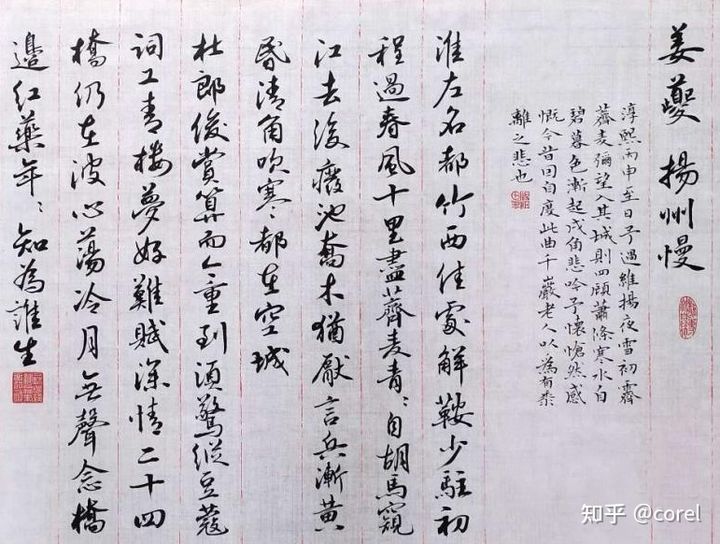 姜夔 揚州慢
淳熙丙申至日予過維揚夜雪初霽
薺麦彌望入其城則四顧蕭條寒水自
碧暮色漸起戍角悲吟予懷愴然感
慨今昔因自度此曲千巖老人以為有黍
離之悲也
淮左名都竹西佳處解鞍少駐初
程過春風十里盡薺麦青〻自胡馬窺
江去後廢池喬木猶厭言兵漸黄
昏清角吹寒〻都在空城
杜郎俊賞算而今重到須驚縱豆蔻
詞工青樓夢好難賦深情二十四
橋仍在波心蕩冷月無聲念橋
邊红藥年〻知為誰生
知乎 @corel